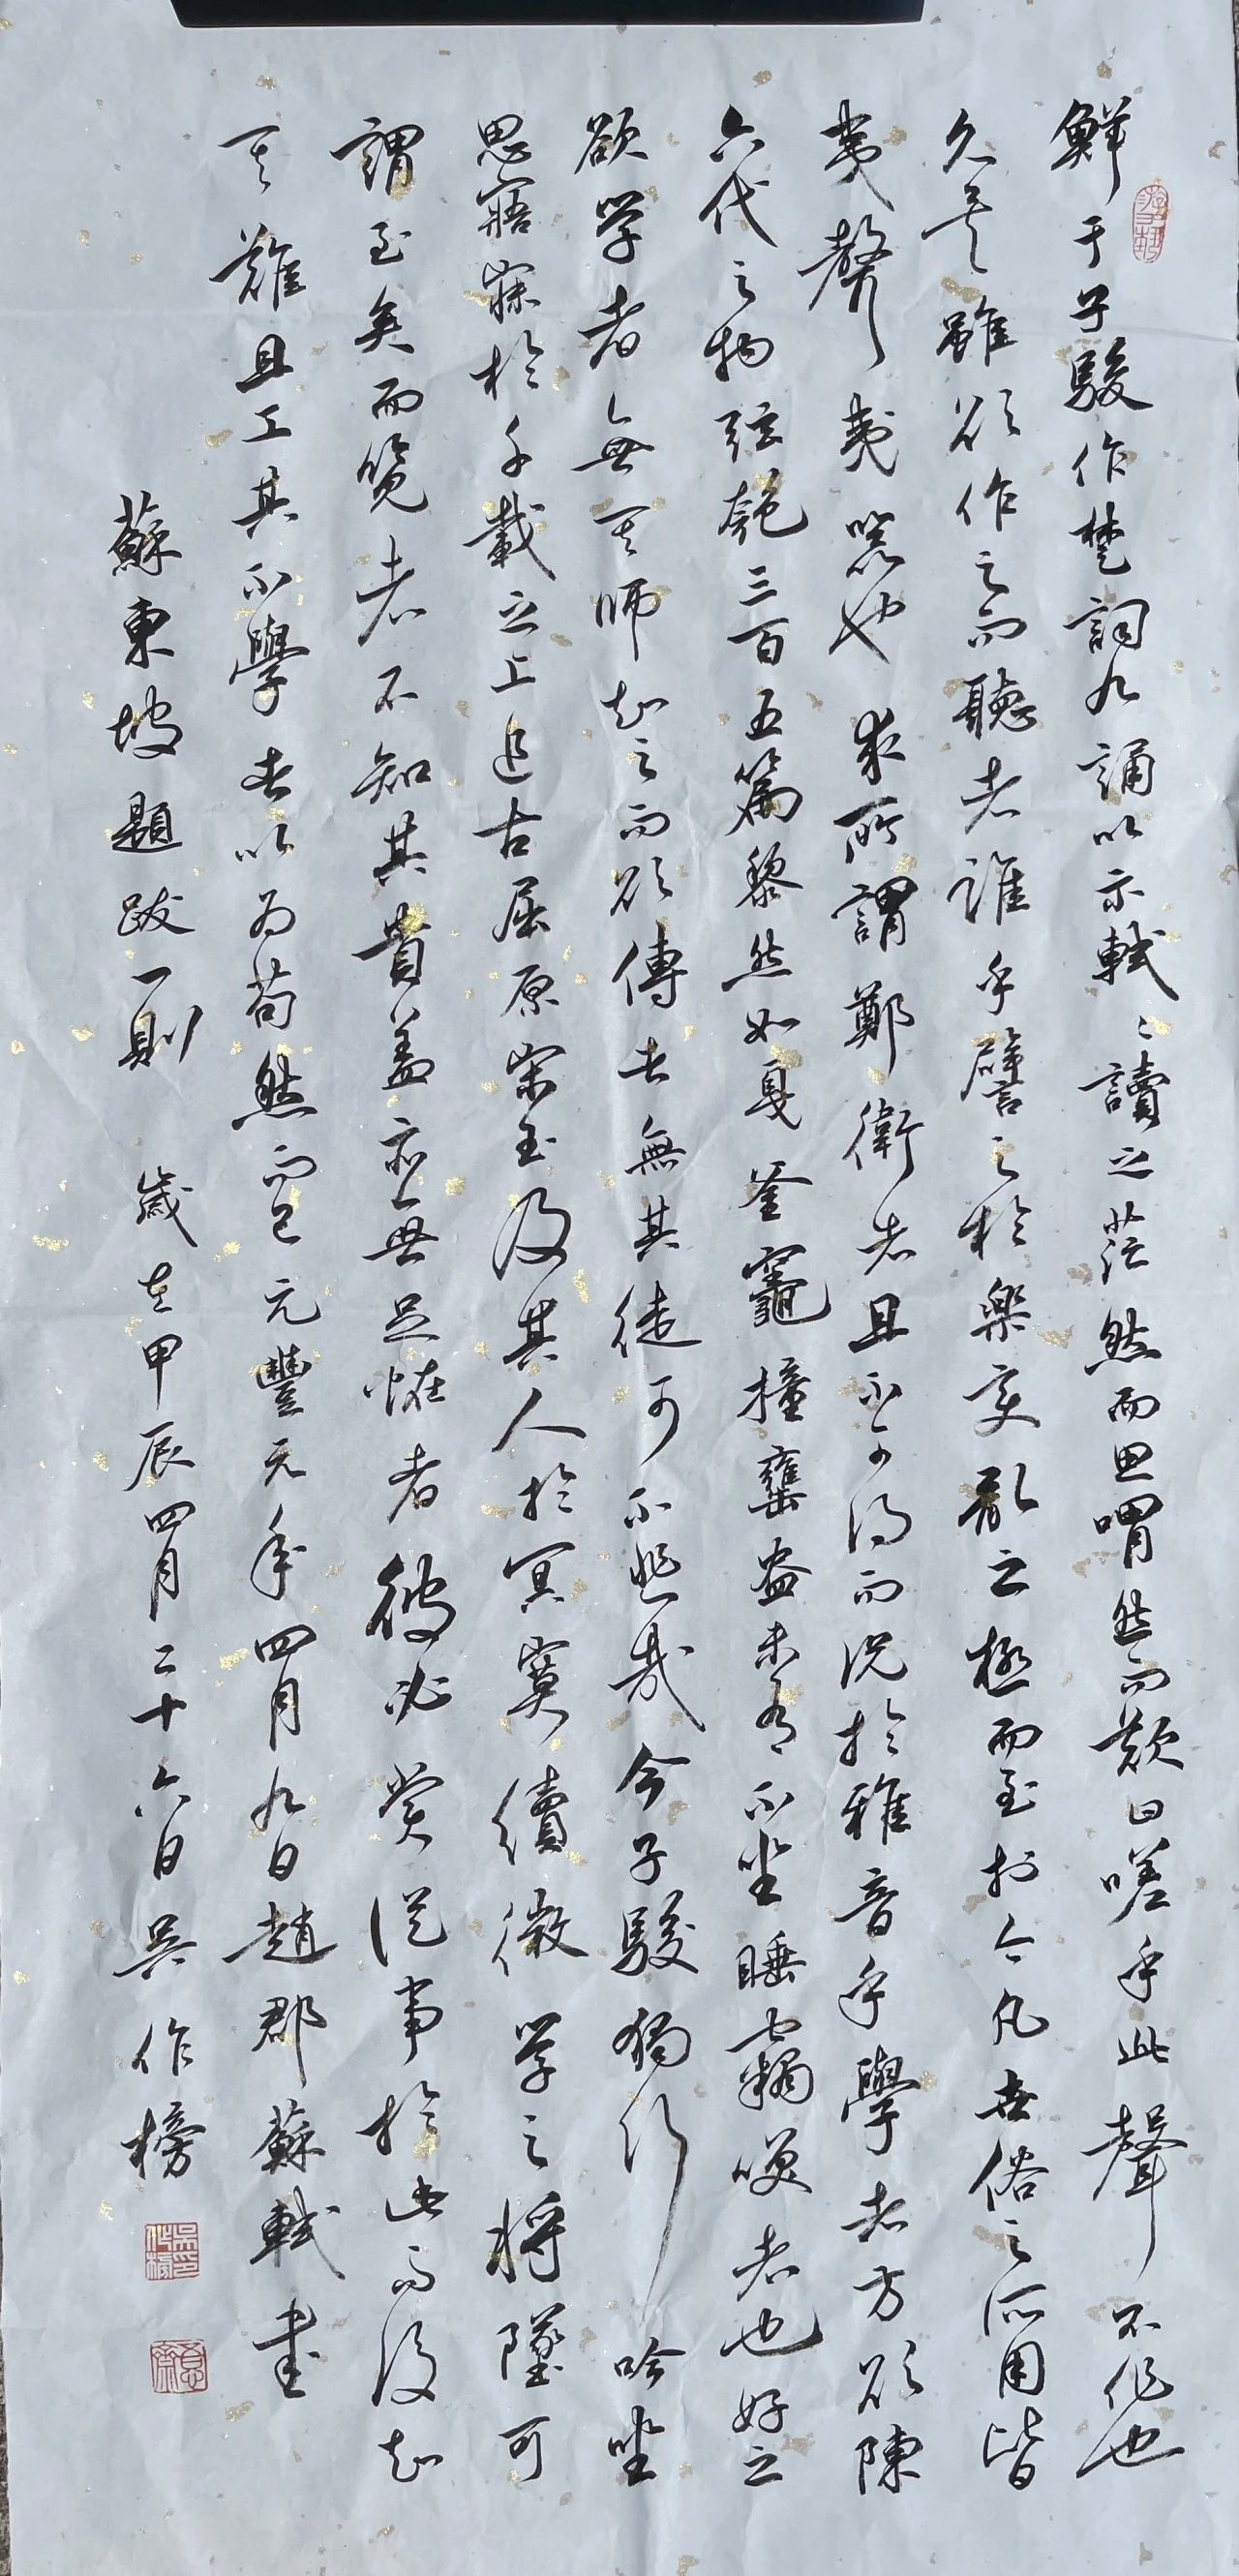 鮮于子駿作楚詞九誦以示軾〻讀之茫然而思喟然而歎曰嗟乎此聲不作也
久矣雖欲作之而聽者誰乎譬之於樂变亂之極而至於今凡世俗之所用皆
夷聲夷器也求所謂鄭衛者且不可得而況於雅音乎學者方欲陳
六代之物弦匏三百五篇黎然如戛釜竈撞甕盎未有不坐睡竊笑者也好之
欲学者無其師知之而欲傳者無其徒可不悲哉今子駿獨行吟坐
思寤寐於千載之上追古屈原宋玉及其人於冥寞續微学之將墜可
謂至矣而览者不知其貴盖亦無足怪者彼必嘗從事於此而後知
其難且工其不學者以为苟然而已元豐元年四月九日趙郡蘇軾書
蘇東坡題跋一則 歲在甲辰四月二十六日吴作榜